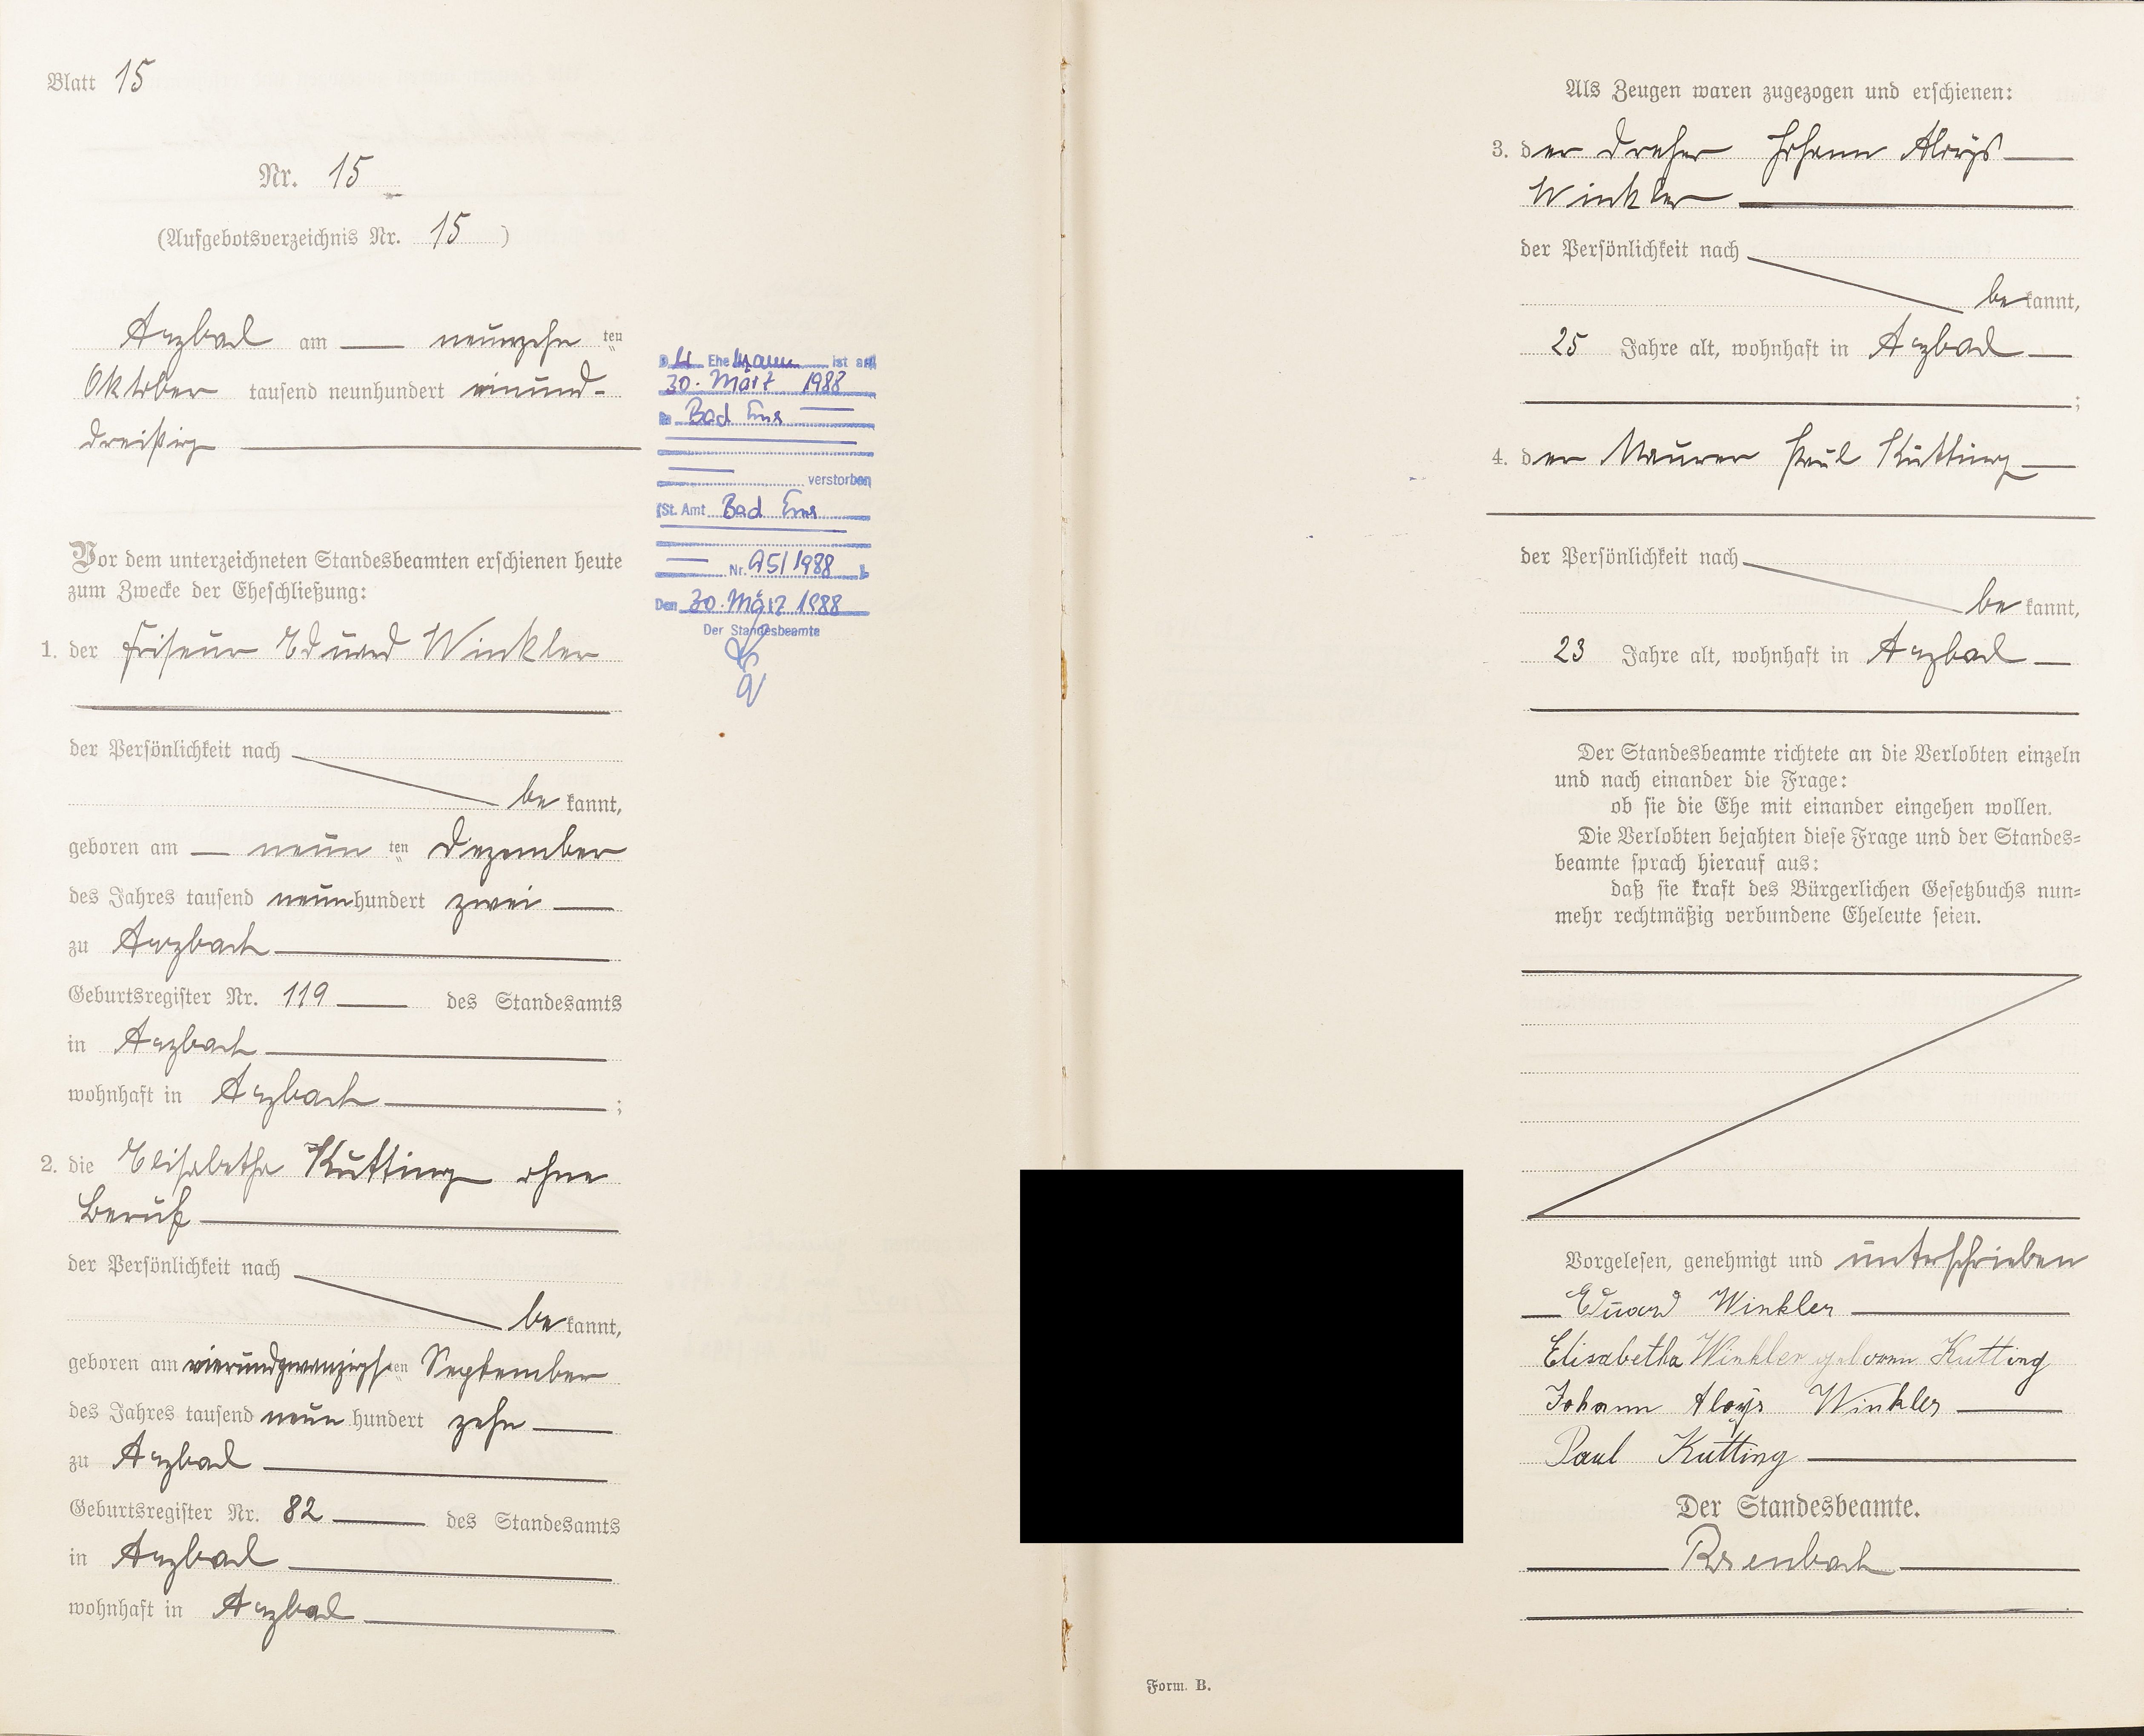 Blatt 15
Nr. 15
(Aufgebotsverzeichnis Nr. 15 )
Arzbach am neunzehn ten
Oktober tausend neunhundert einund-
dreißig
Vor dem unterzeichneten Standesbeamten erschienen heute
zum Zwecke der Eheschließung:
1. der Friseur Eduard Winkler
der Persönlichkeit nach
be kannt,
geboren am neun ten Dezember
des Jahres tausend neun hundert zwei
zu Arzbach
Geburtsregister Nr. 119 des Standesamts
in Arzbach
wohnhaft in Arzbach ;
2. die Elisabetha Kutting ohne
Beruf
der Persönlichkeit nach
be kannt,
geboren am vierundzwanzigsten September
des Jahres tausend neun hundert zehn
zu Arzbach
Geburtsregister Nr. 82 des Standesamts
in Arzbach
wohnhaft in Arzbach
Ehemann ist am
30. März 1988
in Bad Ems
verstorben
(St. Amt Bad Ems
Nr. 95/1988 )
Den 30. März 1988
Der Standesbeamte
Als Zeugen waren zugezogen und erschienen:
3. der Dreher Johann Aloys
Winkler
der Persönlichkeit nach
be kannt,
25 Jahre alt, wohnhaft in Arzbach
;
4. der Maurer Paul Kutting
der Persönlichkeit nach
be kannt,
23 Jahre alt, wohnhaft in Arzbach
Der Standesbeamte richtete an die Verlobten einzeln
und nach einander die Frage:
ob sie die Ehe mit einander eingehen wollen.
Die Verlobten bejahten diese Frage und der Standes-
beamte sprach hierauf aus:
daß sie kraft des Bürgerlichen Gesetzbuchs nun-
mehr rechtmäßig verbundene Eheleute seien.
Vorgelesen, genehmigt und unterschrieben
Eduard Winkler
Elisabetha Winkler geborene Kutting
Johann Aloys Winkler
Paul Kutting
Der Standesbeamte.
Form. B.